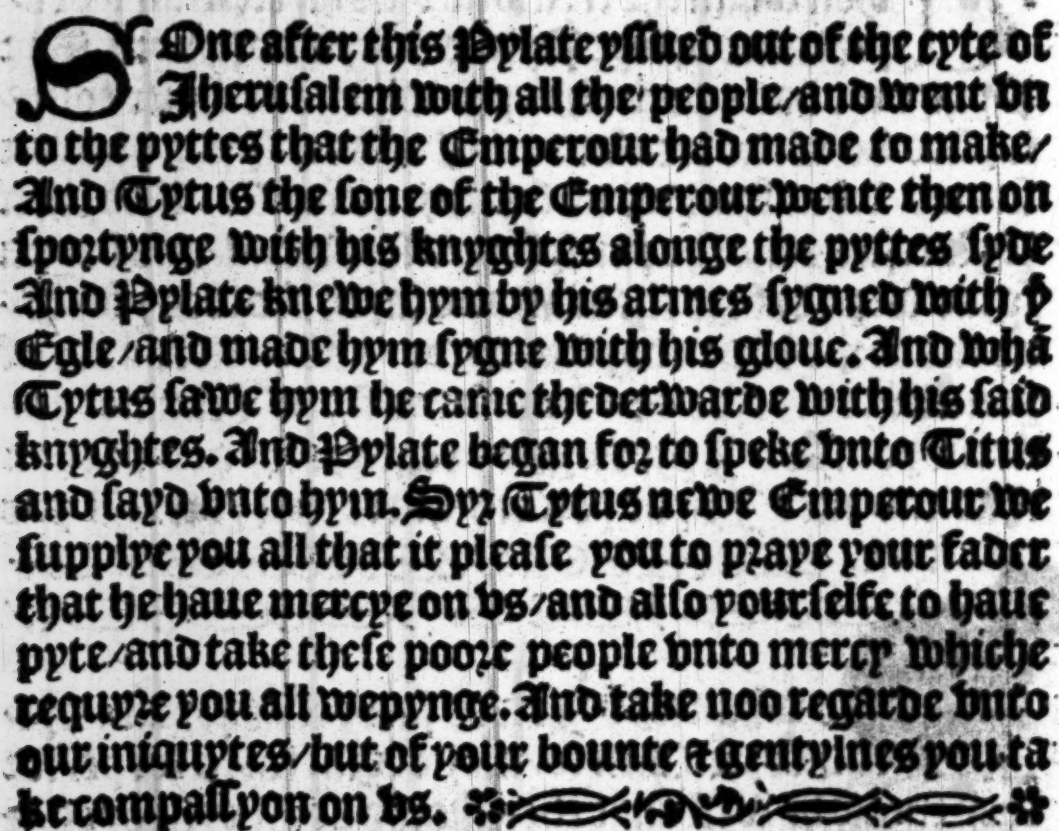 SOne after this Pylate yſſued out of the cyte of
Jheruſalem with all the people/and went vn
to the pyttes that the Emperour had made to make/
And Tytus the ſone of the Emperour wente then on
ſportynge with his knyghtes alonge the pyttes ſyde
And Pylate knewe hym by his armes ſygned with yͤ
Egle/and made hym ſygne with his gloue. And whā
Tytus ſawe hym he came thederwarde with his ſaid
knyghtes. And Pylate began foꝛ to ſpeke vnto Titus
and ſayd vnto hym. Syꝛ Tytus newe Emperour we
ſupplye you all that it pleaſe you to pꝛaye your fader
that he haue mercye on vs/and alſo yourſelfe to haue
pyte/and take theſe pooꝛe people vnto mercy whiche
requyꝛe you all wepynge. And take noo regarde vnto
our iniquytes/but of your bounte & gentylnes you ta
ke compaſſyon on vs.